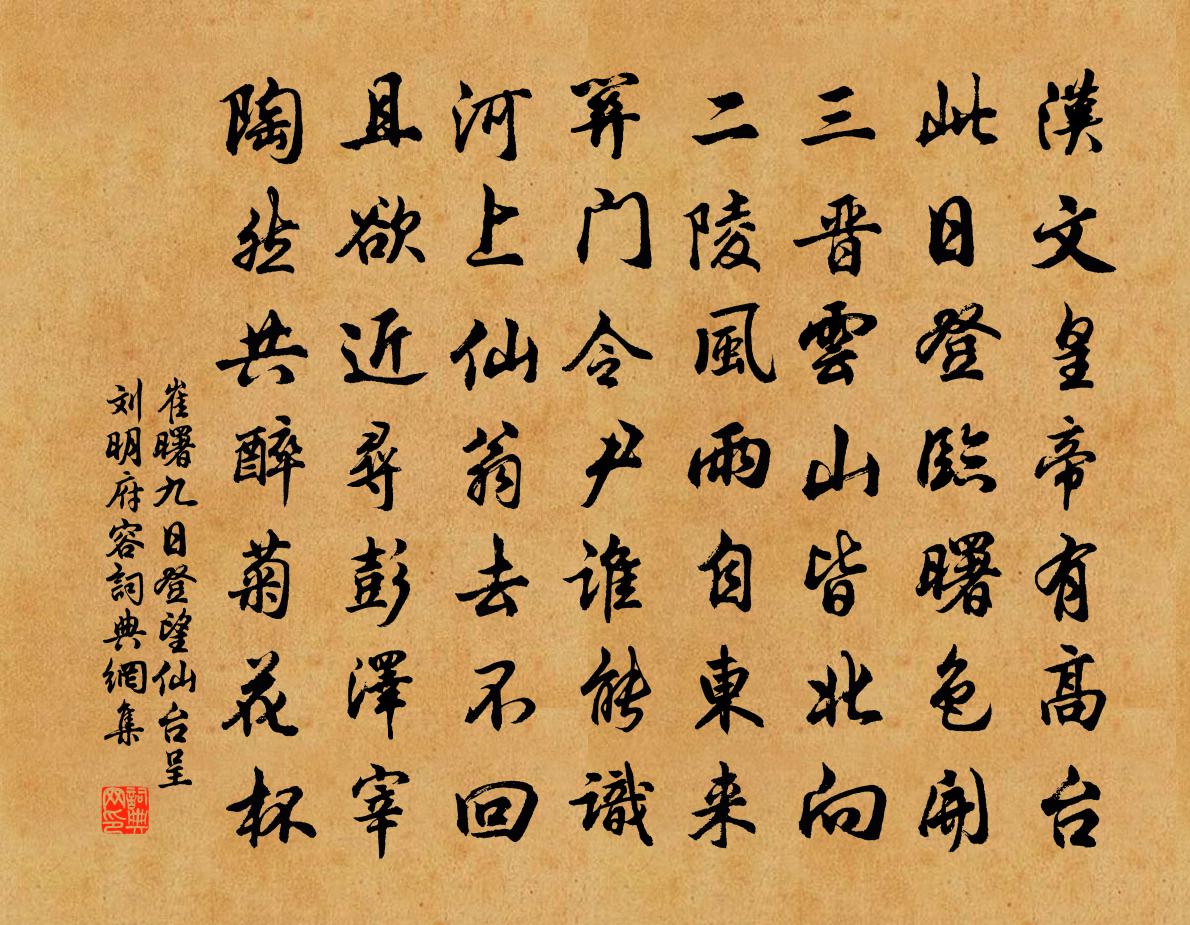 漢文皇帝有高台
此日登臨曙色開
三晋雲山皆北向
二陵風雨自東来
関門令尹谁能識
河上仙翁去不回
且欲近尋彭澤宰
陶然共醉菊花杯
崔曙九日登望仙台呈
刘明府容詞典網集
詞典网印